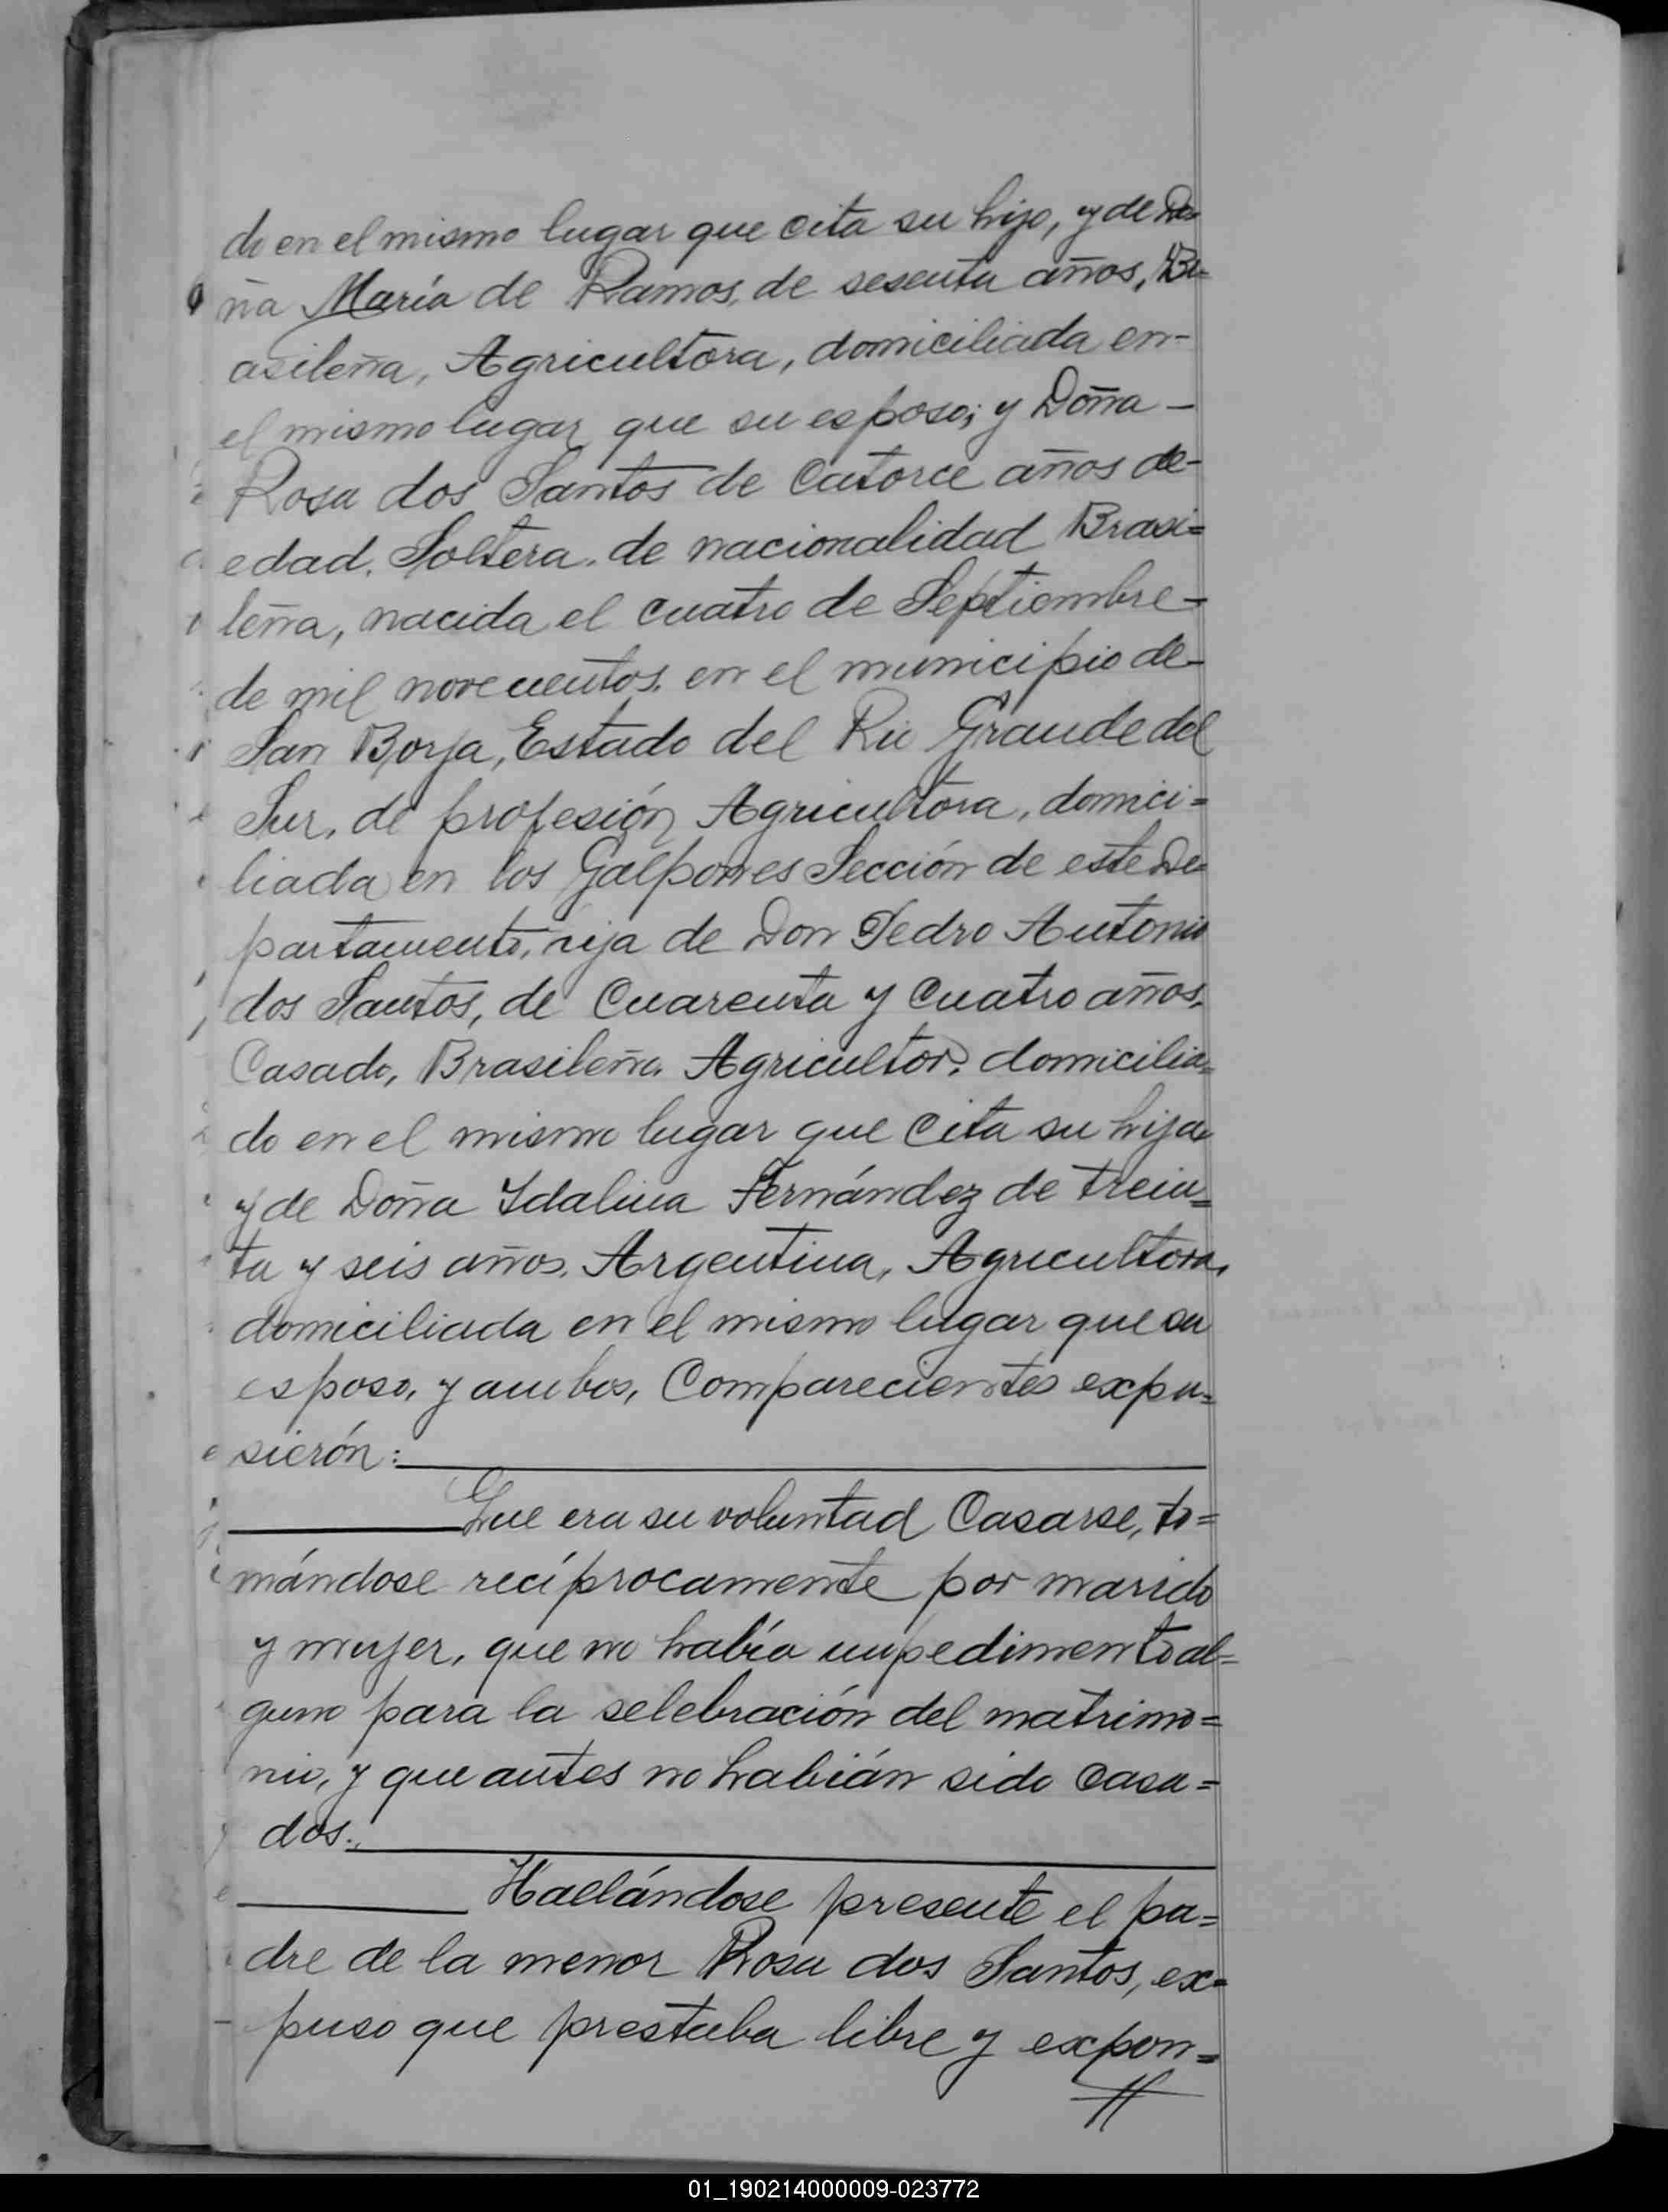 do en el mismo lugar que cita su hijo, y de Do
ña María de Ramos, de sesenta años, Br=
asileña, Agricultora, domiciliada en-
el mismo lugar que su esposo; y Doña -
Rosa dos Santos de Catorce años de-
edad, Soltera, de nacionalidad Brasi=
leña, nacida el cuatro de Septiembre-
de mil novecientos, en el municipio de-
San Borja, Estado del Rio Grande del
Sur, de profesión Agricultora, domici=
liada en los Galpones Sección de este De
partamento, hija de Don Pedro Antonio
dos Santos, de Cuarenta y Cuatro años,
Casado, Brasileño, Agricultor, domicilia=
do en el mismo lugar que Cita su hija
y de Doña Idalina Fernández de trein=
ta y seis años, Argentina, Agricultora,
domiciliada en el mismo lugar que su
esposo, y ambos, Comparecientes expu=
sierón:
Que era su voluntad Casarse, to=
mándose recíprocamente por marido
y mujer, que no había impedimento al=
guno para la selebración del matrimo=
nio, y que antes no habián sido Casa=
dos.
Hallándose presente el pa=
dre de la menor Rosa dos Santos, ex=
puso que prestaba libre y expon=
01_190214000009-023772